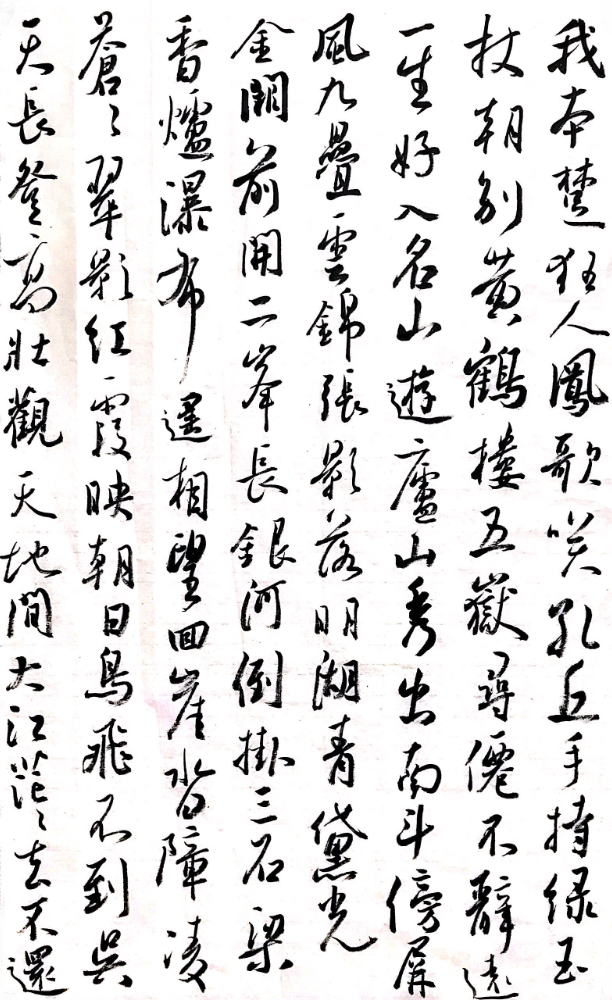 我本楚狂人鳳歌咲孔丘手持綠玉
杖朝別黃鶴樓五嶽尋僊不辭遠
一生好入名山遊廬山秀出南斗傍屏
風九疊雲錦張影落明湖青黛光
金闕前開二峯長銀河倒掛三石梁
香爐瀑布遙相望回崖沓障凌
蒼〻翠影紅霞映朝日鳥飛不到吳
天長登高壯觀天地間大江茫〻去不還